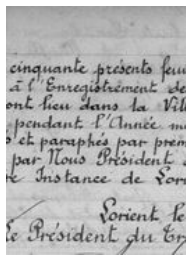 cinquante présents feu
à l'Enregistrement de
ont lieu dans la Vill
pendant l'Année m
s et paraphés par prem
par Nous Président
re Instance de Lor
Lorient le
Le Président du Tr